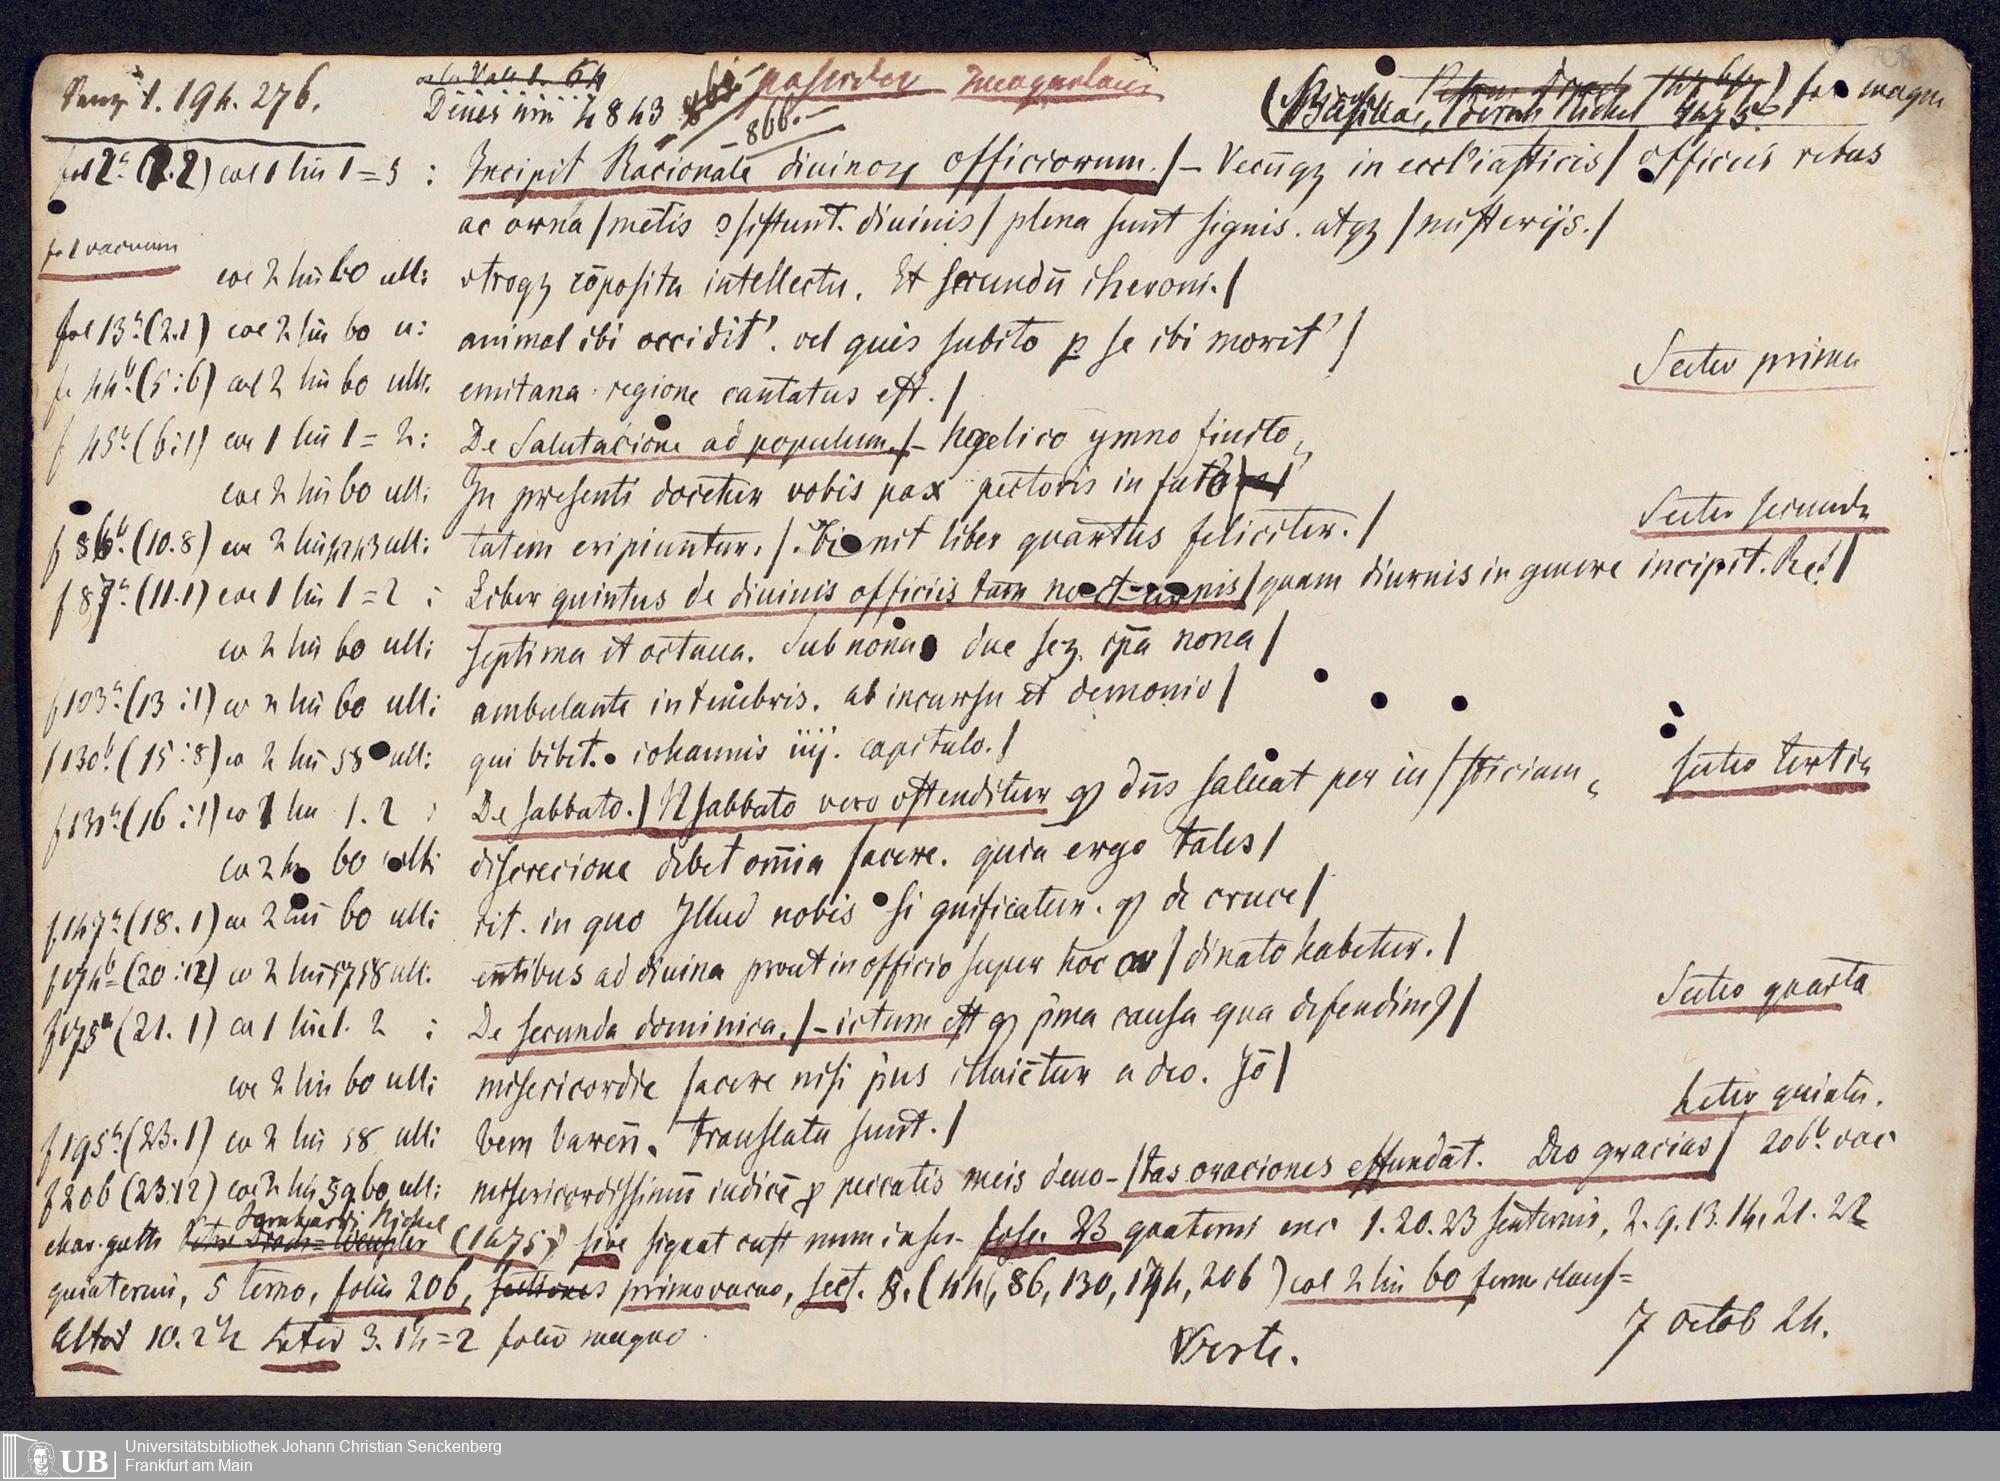 Panz. 1. 194. 276.
Denis niii 4843 866.-
(Basileae, Bernh Richel 1475) fol magn
fol 2a (1.2) col 1 lin 1 = 5 : Incipit Racionale diuinoꝝ officiorum. / - Vecūqꝫ in eccl'iasticis / officiis rebus
ac orna / mētis ↄsistunt. diuinis / plena sunt signis. atqꝫ / misterijs. /
fo 1 vacuum
col 2 lin 60 ult: vtroqꝫ cōposita intellectu. Et secundū iheroni. /
fol 13a (2.1) col 2 lin 60 u: animal ibi occidit'. vel quis subito ꝑ se ibi morit' /
f 44b (5:6) col 2 lin 60 ult: emitana regione cantatus est. /
Sectio prima
f 45a (6:1) col 1 lin 1 = 2: De Salutacione ad populum. / - Ngelico ymno finito
col 2 lin 60 ult: In presenti docetur vobis pax pectoris in futō
f 86b (10.8) col 2 lin 42 43 ult: tatem eripiuntur. / . Finit liber quartus feliciter. /
Sectio secunda
f 87a (11.1) col 1 lin 1 = 2 : Liber quintus de diuinis officiis tam nocturnis / quam diurnis in genere incipit. Re? /
co 2 lin 60 ult: septima et octaua. Sub nona due sez. ip̄a nona /
f 103a (13:1) co 2 lin 60 ult: ambulante in tenebris. ab incursu et demonio /
f 130b (15:8) co 2 lin 58 ult: qui bibet. iohannis iiij. capitulo. /
Sectio tertia
f 131a (16:1) co 1 lin 1. 2 : De sabbato. / N sabbato vero ostenditur ꝙ dūs saluat per iu / sticiam
co 2 lin 60 ult: discrecione debet om̄ia facere. quia ergo tales /
f 147a (18.1) co 2 lin 60 ult: rit. in quo Illud nobis significatur. ꝙ de cruce /
f 174b (20:12) co 2 lin 57 58 ult: entibus ad diuina prout in officio super hoc or / dinato habetur. /
Sectio quarta
f 175a (21.1) co 1 lin 1. 2 : De secunda dominica. / - ictum est ꝙ p̄ma causa qua defendim9 /
col 2 lin 60 ult: misericordie facere nisi p̄us illuiētur a deo. Jō /
Sectio quinta.
f 195a (23.1) co 2 lin 58 ult: bem baren. Translata sunt. /
f 206 (23:12) col 2 lin 59 60 ult: misericordissimū iudicē ꝓ peccatis meis deuo- / tas oraciones effundāt. Deo gracias / 206b vac
char. goth Bernhardi Richel (1475) sine signat cust num inscr. fose. 23 quaterni exc 1. 20. 23 senternis, 2. 9. 13. 14. 21. 22
quinternis, 5 terno, foliis 206, primo vacuo, sect. 5. (44, 86, 130, 174, 206) col 2 lin 60 ferme claus =
Altit 10. 2 1/2 Latit 3. 1 1/2 = 2 folio magno.
Verte.
7 Octob 24.
Universitätsbibliothek Johann Christian Senckenberg
Frankfurt am Main
UB